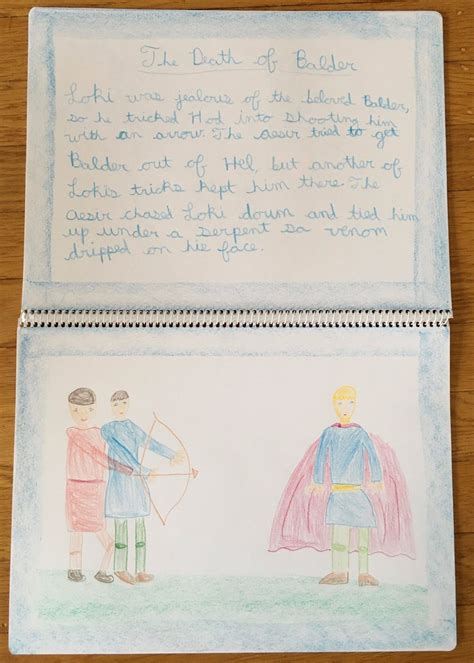 The Death of Balder
Loki was jealous of the beloved Balder,
so he tricked Hod into shooting him
with an arrow. The aesir tried to get
Balder out of Hel, but another of
Lokis tricks kept him there. The
aesir chased Loki down and tied him
up under a serpent so venom
dripped on his face.